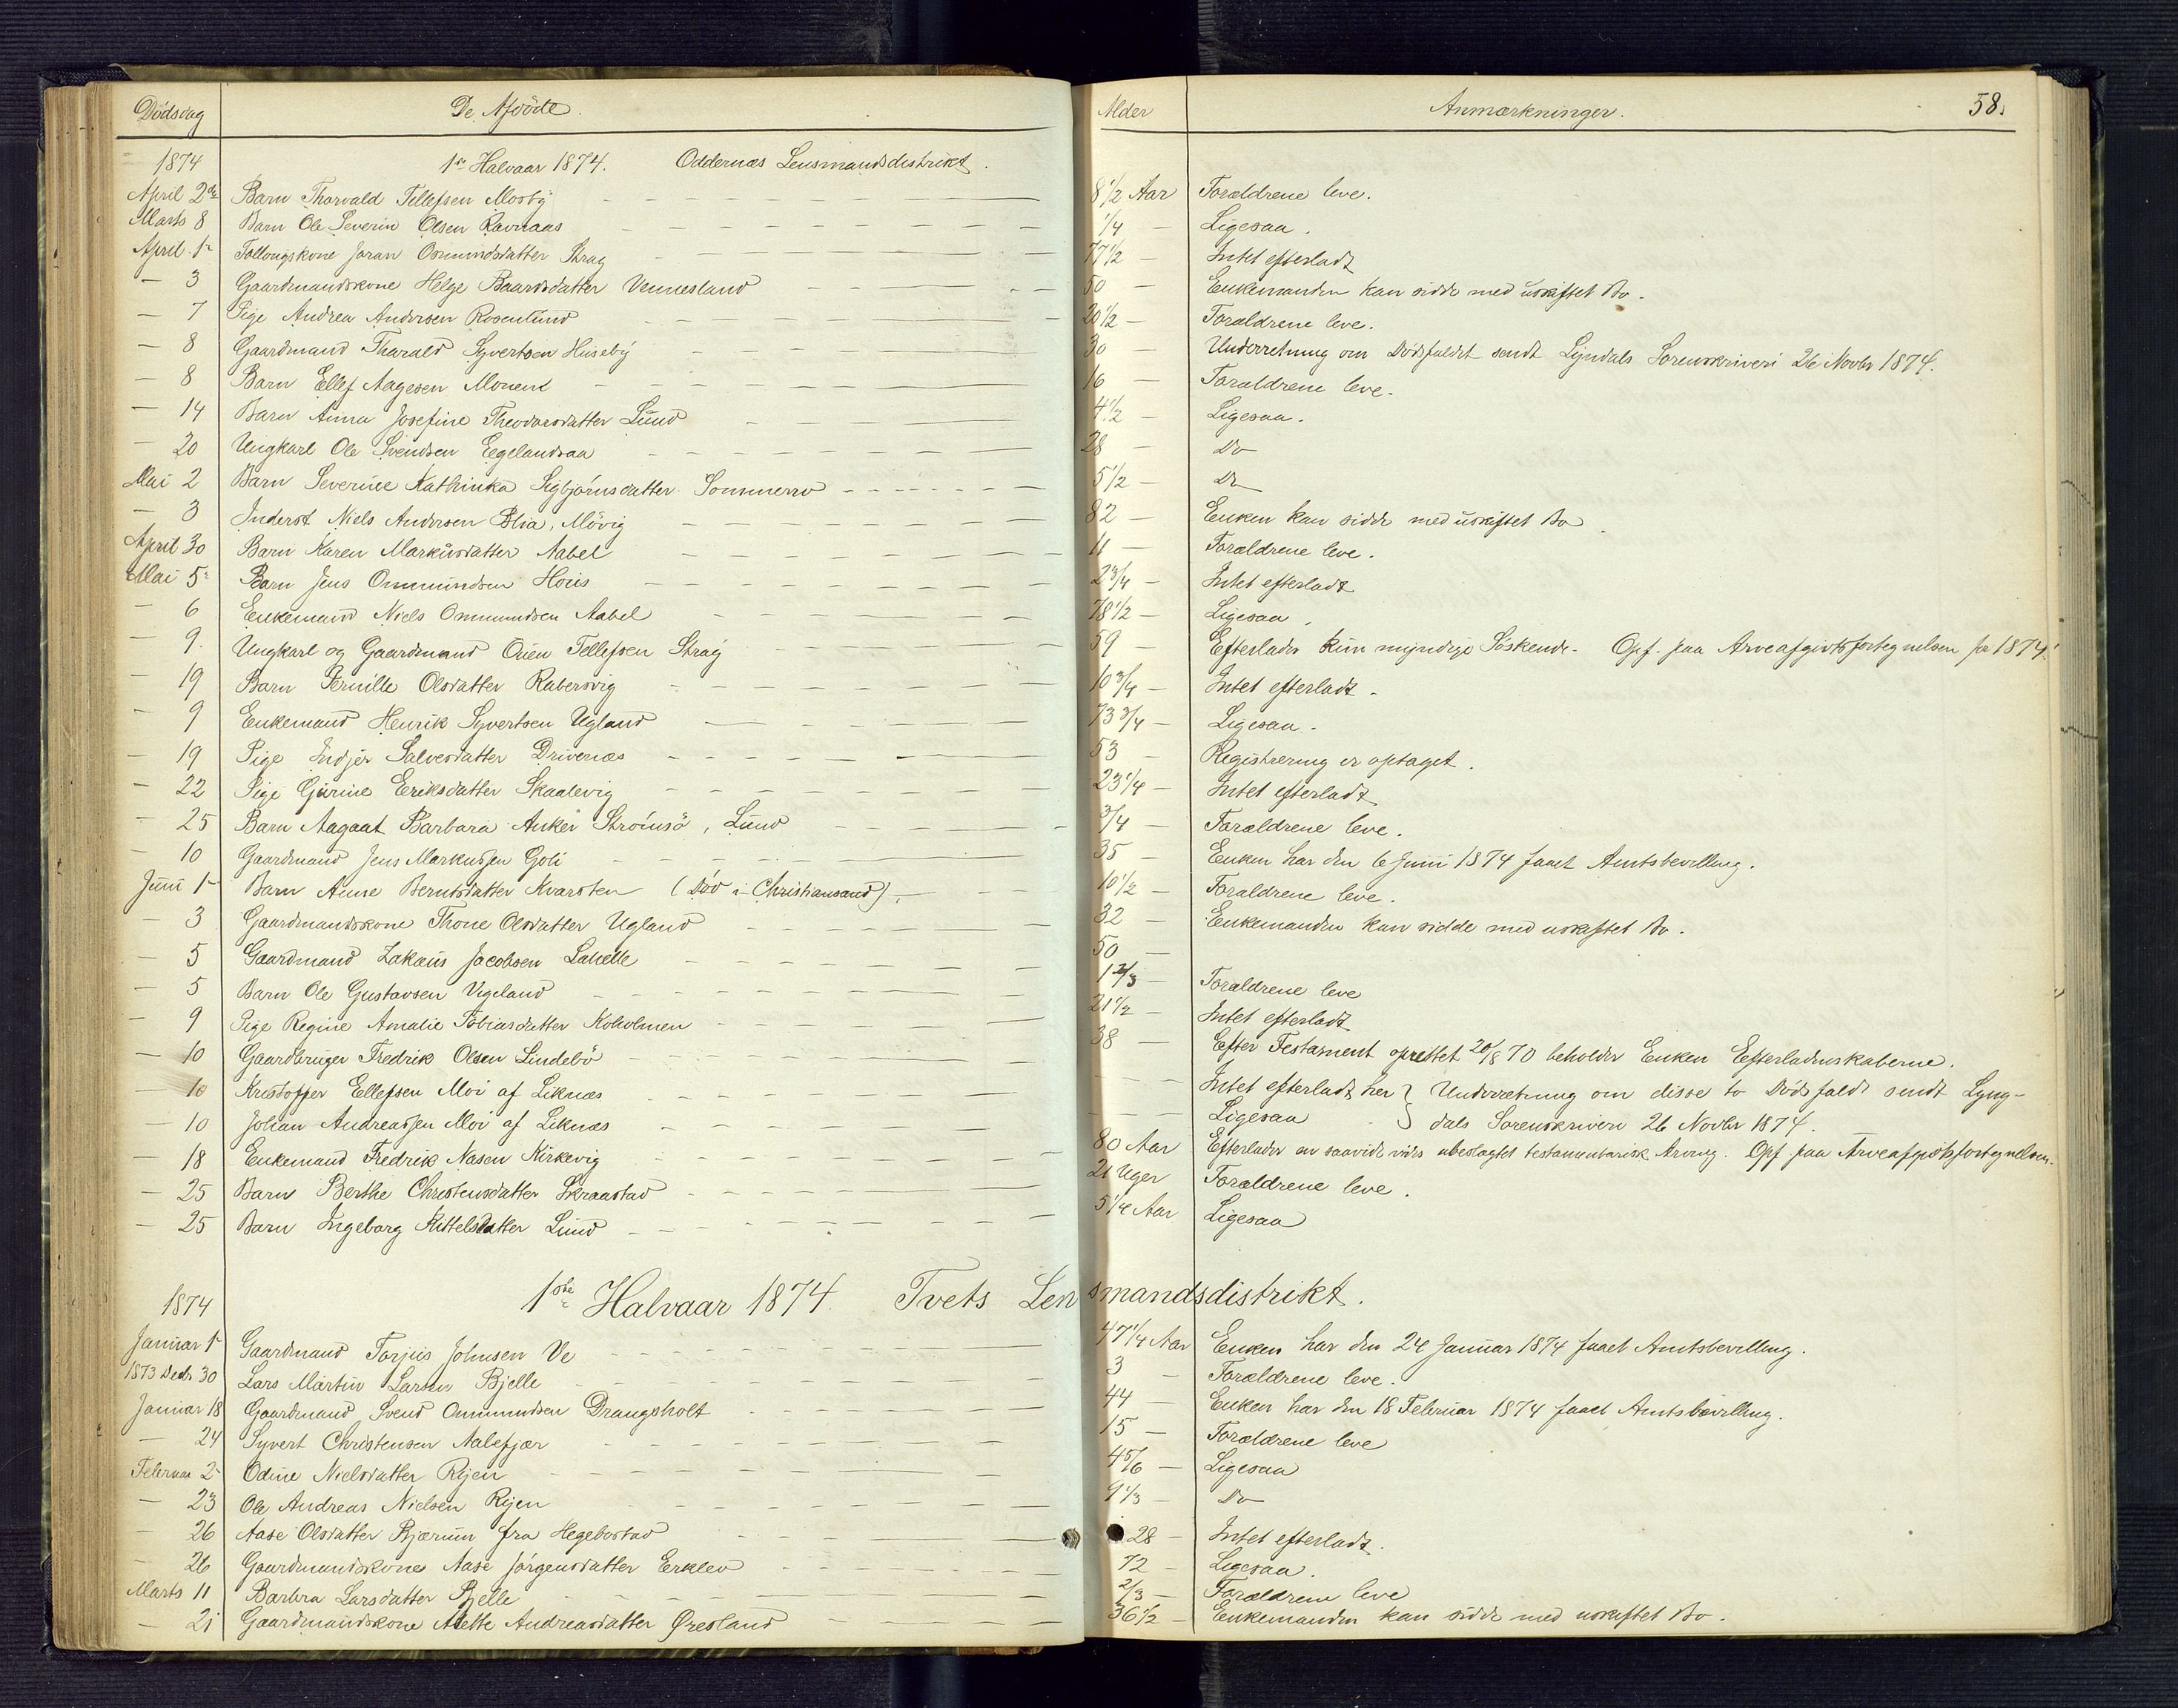 Dödsdag De Afdöde. Alder Anmærkninger. 58.
1874 1ste Halvaar 1874. Oddernæs Lensmandsdistrikt.
April 2de Barn Thorvald Tellefsen Mosby 8 1/2 Aar Forældrene leve.
Marts 8 Barn Ole Severin Olsen Ravnaas 1/4 — Ligesaa.
April 1 Follougskone Joran Osmundsdatter Strag 77 1/2 — Intet efterladt
— 3 Gaardmandskone Helge Baardsdatter Vennesland 50 — Enkemanden kan sidde med uskiftet Bo.
— 7 Pige Andrea Andersen Rosenlund 20 1/2 — Forældrene leve.
— 8 Gaardmand Tharald Syvertsen Huseby 30 — Underretning om Dödsfaldet sendt Lyndals Sorenskriveri 26 Novbr 1874.
— 8 Barn Ellef Aagesen Monene 16 — Forældrene leve.
— 14 Barn Anna Josefine Theodorsdatter Lund 4 1/2 — Ligesaa.
— 20 Ungkarl Ole Svendsen Egelandsaa 28 — Do
Mai 2 Barn Severine Kathinka Sigbjörnsdatter Sommerro 5 1/2 — Do
— 3 Inderst Niels Andersen Slia, Mövig 82 — Enken kan sidde med uskiftet Bo.
April 30 Barn Karen Markusdatter Aabel 11 — Forældrene leve.
Mai 5 Barn Jens Ommundsen Höus 2 3/4 — Intet efterladt
— 6 Enkemand Niels Ommundsen Aabel 78 1/2 — Ligesaa.
— 9 Ungkarl og Gaardmand Ouen Tellefsen Strag 59 — Efterlader kun myndige Söskende. Opf. paa Arveafgiftsfortegnelsen for 1874.
— 19 Barn Pernille Olsdatter Rabersvig 10 3/4 — Intet efterladt.
— 9 Enkemand Henrik Syvertsen Ugland 73 3/4 — Ligesaa.
— 19 Pige Indjer Salvesdatter Drivenæs 53 — Registrering er optaget.
— 22 Pige Gurine Eriksdatter Skaalevig 23 1/4 — Intet efterladt
— 25 Barn Aagaat Barbara Anker Strömsö, Lund 3/4 — Forældrene leve.
— 10 Gaardmand Jens Markussen Goli 35 — Enken har den 6 Juni 1874 faaet Amtsbevilling.
Juni 1 Barn Anne Berntsdatter Kvarsten (Död i Christiansand). 10 1/2 — Forældrene leve.
— 3 Gaardmandskone Thone Olsdatter Ugland 32 — Enkemanden kan sidde med uskiftet Bo.
— 5 Gaardmand Zakæus Jacobsen Lahelle 50 —
— 5 Barn Ole Gustavsen Vigeland 1 2/3 — Forældrene leve
— 9 Pige Regine Amalie Tobiasdatter Koholmen 21 1/2 — Intet efterladt
— 10 Gaardbruger Fredrik Olsen Lindebö 38 — Efter Testament oprettet 20/8 70 beholder Enken Efterladenskaberne.
— 10 Kristoffer Ellefsen Moi af Liknæs — — Intet efterladt her } Underretning om disse to Dödsfald sendt Lyng-
— 10 Johan Andreassen Moi af Liknæs — — Ligesaa dals Sorenskriveri 26 Novbr 1874.
— 18 Enkemand Fredrik Nasen Kirkevig 80 Aar Efterlader en saavidt vides ubeslagtet testamentarisk Arving. Opf paa Arveafgiftsfortegnelsen.
— 25 Barn Berthe Christensdatter Skraastad 21 Uger Forældrene leve.
— 25 Barn Ingeborg Kittelsdatter Lund 5 1/4 Aar Ligesaa
1874 1ste Halvaar 1874. Tvets Lensmandsdistrikt.
Januar 1 Gaardmand Torjus Johnsen Ve 47 1/4 Aar Enken har den 24 Januar 1874 faaet Amtsbevilling.
1873 Decbr 30 Lars Martin Larsen Bjelle 3 — Forældrene leve.
Januar 18 Gaardmand Svend Ommundsen Drangsholt 44 — Enken har den 18 Februar 1874 faaet Amtsbevilling.
— 24 Syvert Christensen Aalefjær 15 — Forældrene leve
Februar 2 Odine Nielsdatter Rijen 4 5/6 — Ligesaa
— 23 Ole Andreas Nielsen Rijen 9 1/3 — Do
— 26 Aase Olsdatter Bjærum fra Hegebostad 28 — Intet efterladt.
— 26 Gaardmandskone Aase Jörgensdatter Erklev 72 — Ligesaa.
Marts 11 Barbra Larsdatter Bjelle 2/3 — Forældrene leve
— 21 Gaardmandskone Mette Andreasdatter Øresland 36 1/2 — Enkemanden kan sidde med uskiftet Bo.